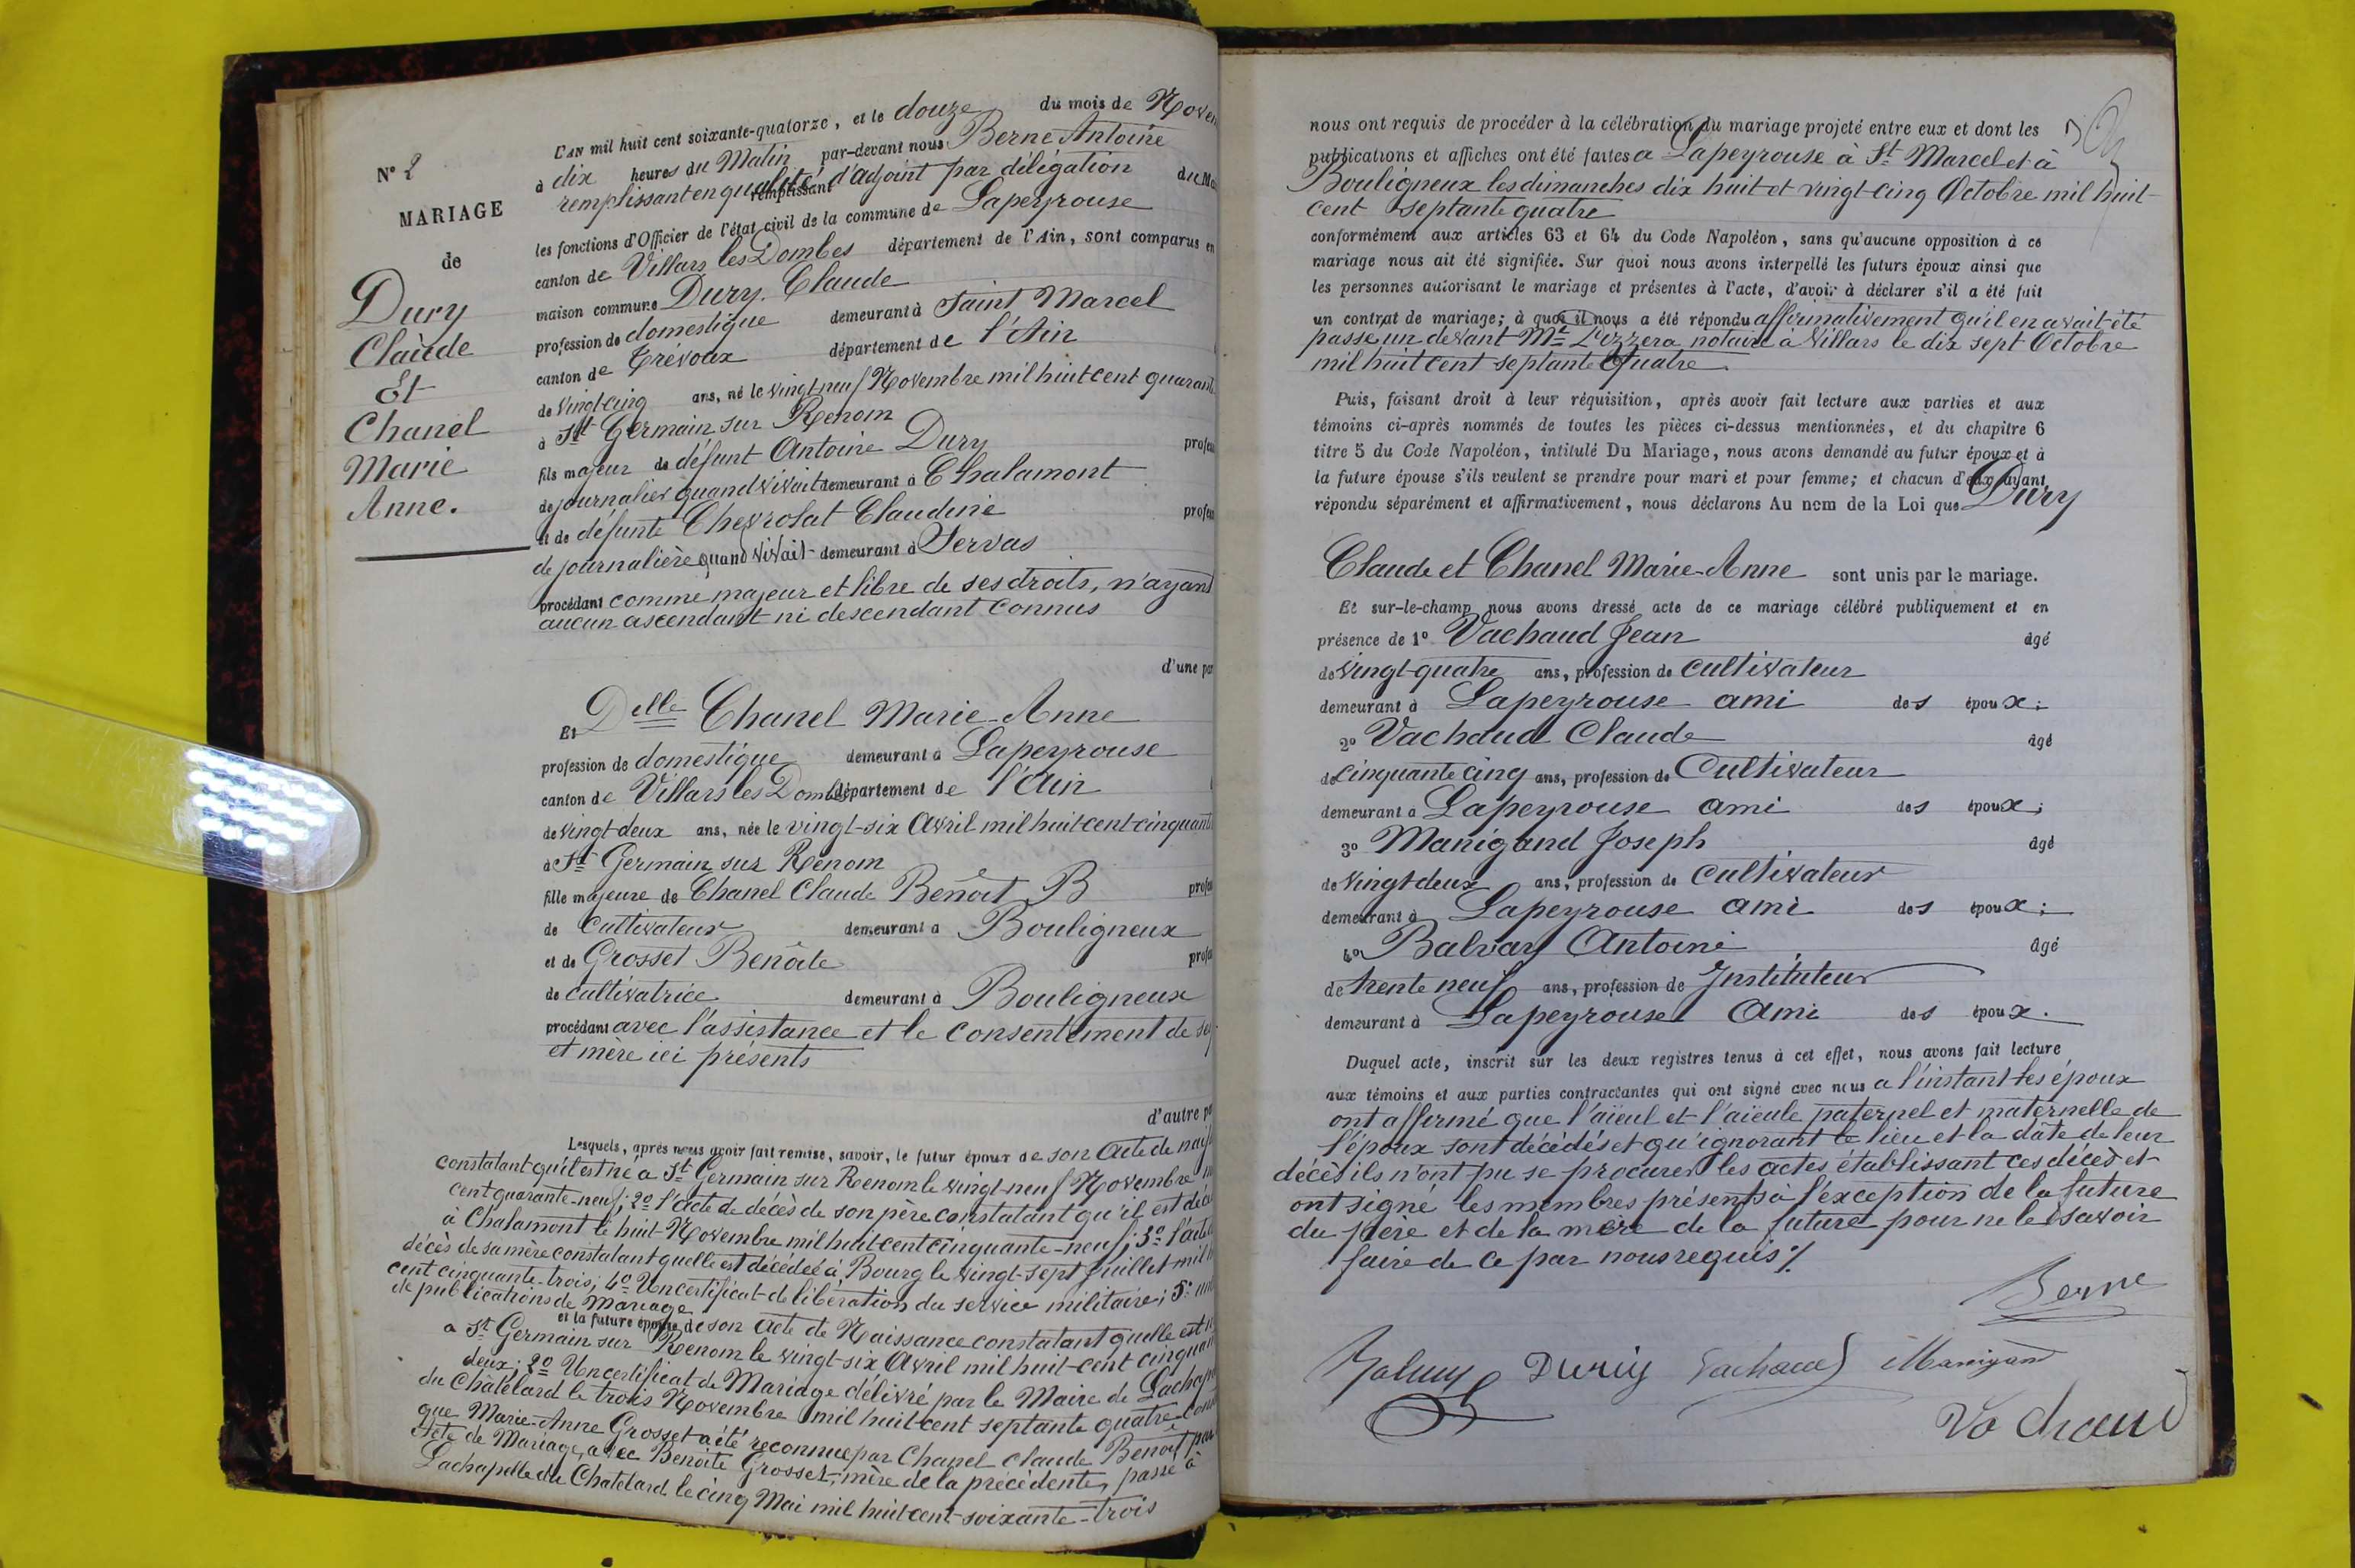 N° 2
MARIAGE
de
Dury
Claude
Et
Chanel
Marie
Anne.
L'AN mil huit cent soixante-quatorze, et le douze du mois de Noven
à dix heures du Matin par-devant nous Berne Antoine
remplissant en qualité d'adjoint par délégation du Ma
remplissant
les fonctions d'Officier de l'état civil de la commune de Lapeyrouse
canton de Villars les Dombes département de l'Ain, sont comparus en
maison commune Dury Claude
profession de domestique demeurant à Saint Marcel
canton de Trévoux département de l'Ain
de Vingt-cinq ans, né le vingt-neuf Novembre mil huit cent quarant
à St Germain sur Renom
fils majeur de défunt Antoine Dury profes
de journalier quand vivait demeurant à Chalamont
et de défunte Chevrolat Claudine profes
de journalière quand vivait demeurant à Servas
procédant comme majeur et libre de ses droits, n'ayant
aucun ascendant ni descendant connus
d'une par
Et Delle Chanel Marie-Anne
profession de domestique demeurant à Lapeyrouse
canton de Villars les Dombes département de l'Ain
de vingt-deux ans, née le vingt-six Avril mil huit cent cinquant
à St Germain sur Renom
fille majeure de Chanel Claude Benoit B profes
de cultivateur demeurant à Bouligneux
et de Grosset Benoîte profes
de cultivatrice demeurant à Bouligneux
procédant avec l'assistance et le consentement de ses
et mère ici présents
d'autre pa
Lesquels, après nous avoir fait remise, savoir, le futur époux de son acte de naiss
constatant qu'il est né à St Germain sur Renom le vingt-neuf Novembre m
cent quarante-neuf; 2° l'acte de décès de son père constatant qu'il est décé
à Chalamont le huit Novembre mil huit cent cinquante-neuf; 3° l'acte d
décès de sa mère constatant quelle est décédée à Bourg le vingt-sept juillet mil h
cent cinquante-trois; 4° Un certificat de libération du service militaire; 5° un
de publications de mariage
et la future épouse de son acte de Naissance constatant quelle est n
à St Germain sur Renom le vingt-six Avril mil huit-cent cinquan
deux; 2° Un certificat de Mariage délivré par le Maire de Lachap
du Châtelard le trois Novembre mil huit cent septante quatre cons
que Marie-Anne Grosset a été reconnue par Chanel Claude Benoit par
Acte de Mariage, avec Benoîte Grosset, mère de la précédente, passé à
Lachapelle du Chatelard le cinq Mai mil huit cent soixante-trois
nous ont requis de procéder à la célébration du mariage projeté entre eux et dont les
publications et affiches ont été faites à Lapeyrouse à St Marcel et à
Bouligneux les dimanches dix huit et vingt-cinq Octobre mil huit-
cent septante quatre
conformément aux articles 63 et 64 du Code Napoléon, sans qu'aucune opposition à ce
mariage nous ait été signifiée. Sur quoi nous avons interpellé les futurs époux ainsi que
les personnes autorisant le mariage et présentes à l'acte, d'avoir à déclarer s'il a été fait
un contrat de mariage; à quoi il nous a été répondu affirmativement qu'il en avait été
passé un devant Me notaire à Villars le dix sept Octobre
mil huit cent septante Quatre.
Puis, faisant droit à leur réquisition, après avoir fait lecture aux parties et aux
témoins ci-après nommés de toutes les pièces ci-dessus mentionnées, et du chapitre 6
titre 5 du Code Napoléon, intitulé Du Mariage, nous avons demandé au futur époux et à
la future épouse s'ils veulent se prendre pour mari et pour femme; et chacun d'eux ayant
répondu séparément et affirmativement, nous déclarons Au nom de la Loi que Dury
Claude et Chanel Marie-Anne sont unis par le mariage.
Et sur-le-champ nous avons dressé acte de ce mariage célébré publiquement et en
présence de 1° Vachaud Jean âgé
de vingt-quatre ans, profession de cultivateur
demeurant à Lapeyrouse ami des époux;
2° Vachaud Claude âgé
de cinquante cinq ans, profession de Cultivateur
demeurant à Lapeyrouse ami des époux;
3° Manigand Joseph âgé
de vingt-deux ans, profession de cultivateur
demeurant à Lapeyrouse ami des époux;
4° Balvay Antoine âgé
de trente neuf ans, profession de Instituteur
demeurant à Lapeyrouse Ami des époux.
Duquel acte, inscrit sur les deux registres tenus à cet effet, nous avons fait lecture
aux témoins et aux parties contractantes qui ont signé avec nous à l'instant les époux
ont affirmé que l'aïeul et l'aïeule paternel et maternelle de
l'époux sont décédés et qu'ignorant le lieu et la date de leur
décès ils n'ont pu se procurer les actes établissant ces décès et
ont signé les membres présents à l'exception de la future
du père et de la mère de la future pour ne le savoir
faire de ce par nous requis ./.
Berne
Balvay Dury Vachaud Manigand
Vachaud